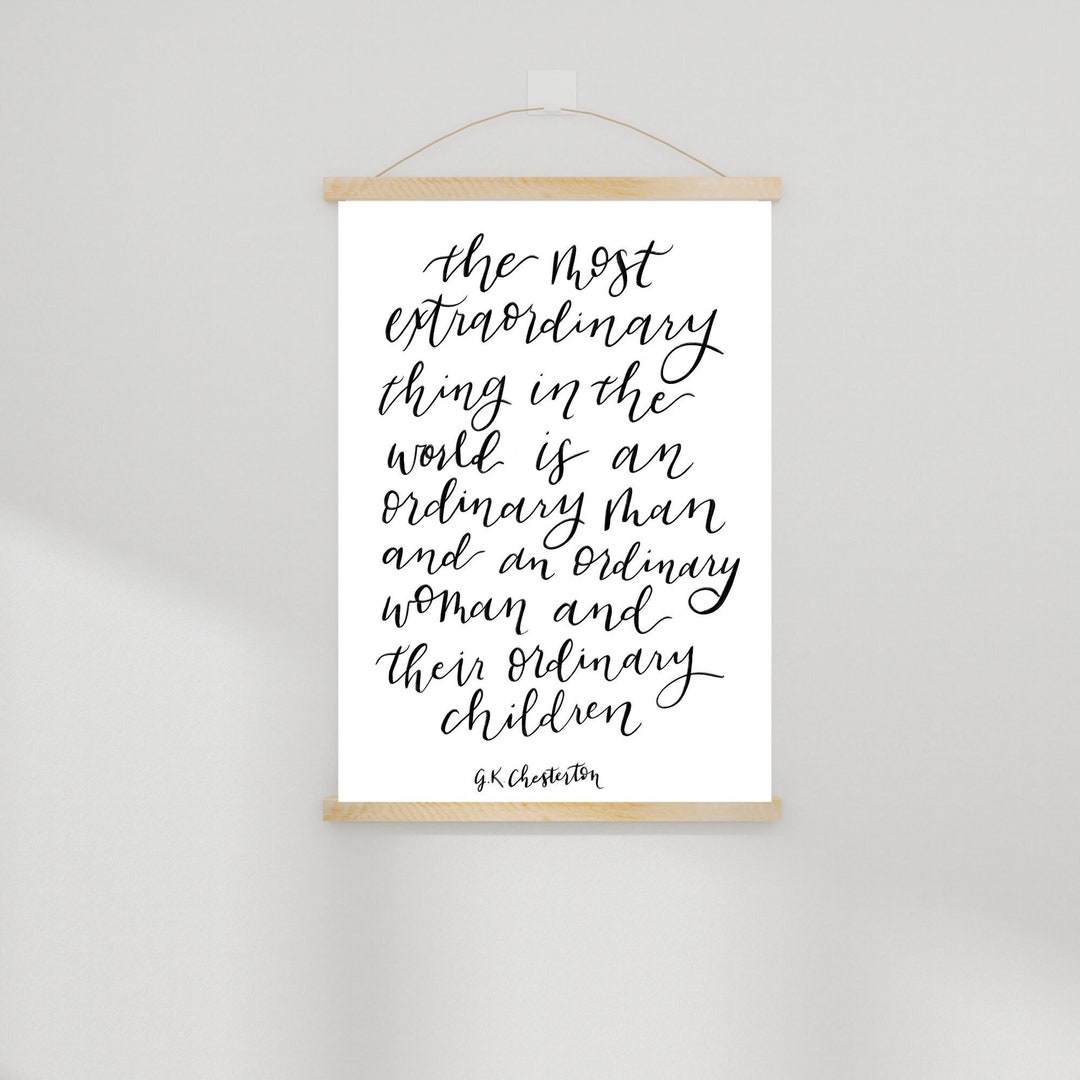 the most
extraordinary
thing in the
world is an
ordinary man
and an ordinary
woman and
their ordinary
children
G.K Chesterton